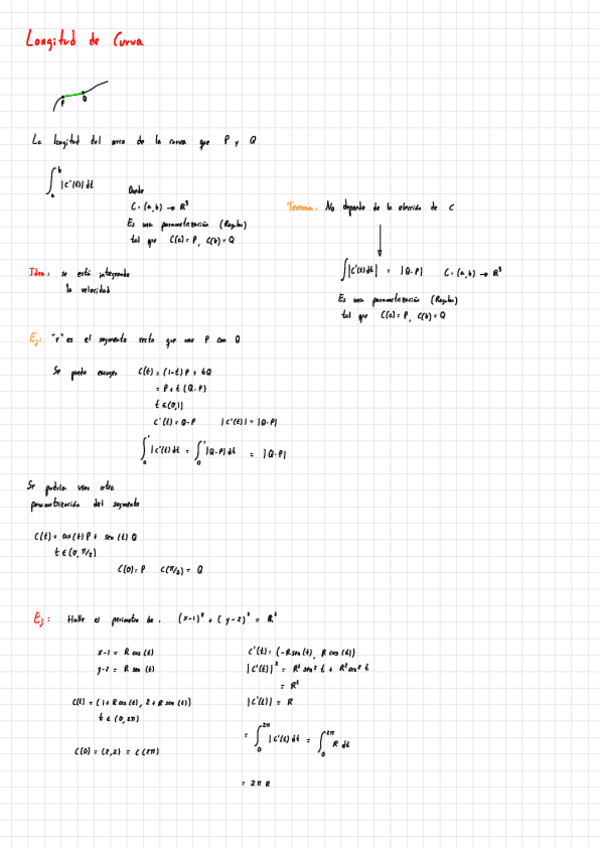 Longitud de Curva
P Q
La longitud del arco de la curva que P y Q
∫_a^b |C'(t)| dt
Donde
C: (a,b) → R³
Es una parametrización (Regular)
tal que C(a) = P, C(b) = Q
Teorema: No depende de la elección de C
∫|C'(t) dt| = |Q-P| C: (a,b) → R³
Es una parametrización (Regular)
tal que C(a) = P, C(b) = Q
Idea: se está integrando
la velocidad
Ej: "r" es el segmento recto que une P con Q
Se puede escoger C(t) = (1-t)P + tQ
= P + t(Q-P)
t ∈ (0,1)
C'(t) = Q-P |C'(t)| = |Q-P|
∫_0^1 |C'(t)| dt = ∫_0^1 |Q-P| dt = |Q-P|
Se podría usar otra
parametrización del segmento
C(t) = cos(t)P + sen(t)Q
t ∈ (0, π/2)
C(0) = P C(π/2) = Q
Ej: Halle el perimetro de: (x-1)² + (y-2)² = R²
x-1 = R cos(t)
y-2 = R sen(t)
C(t) = (1+R cos(t), 2+R sen(t))
t ∈ (0, 2π)
C(0) = (2,2) = C(2π)
C'(t) = (-R sen(t), R cos(t))
|C'(t)|² = R² sen² t + R² cos² t
= R²
|C'(t)| = R
= ∫_0^{2π} |C'(t)| dt = ∫_0^{2π} R dt
= 2π R